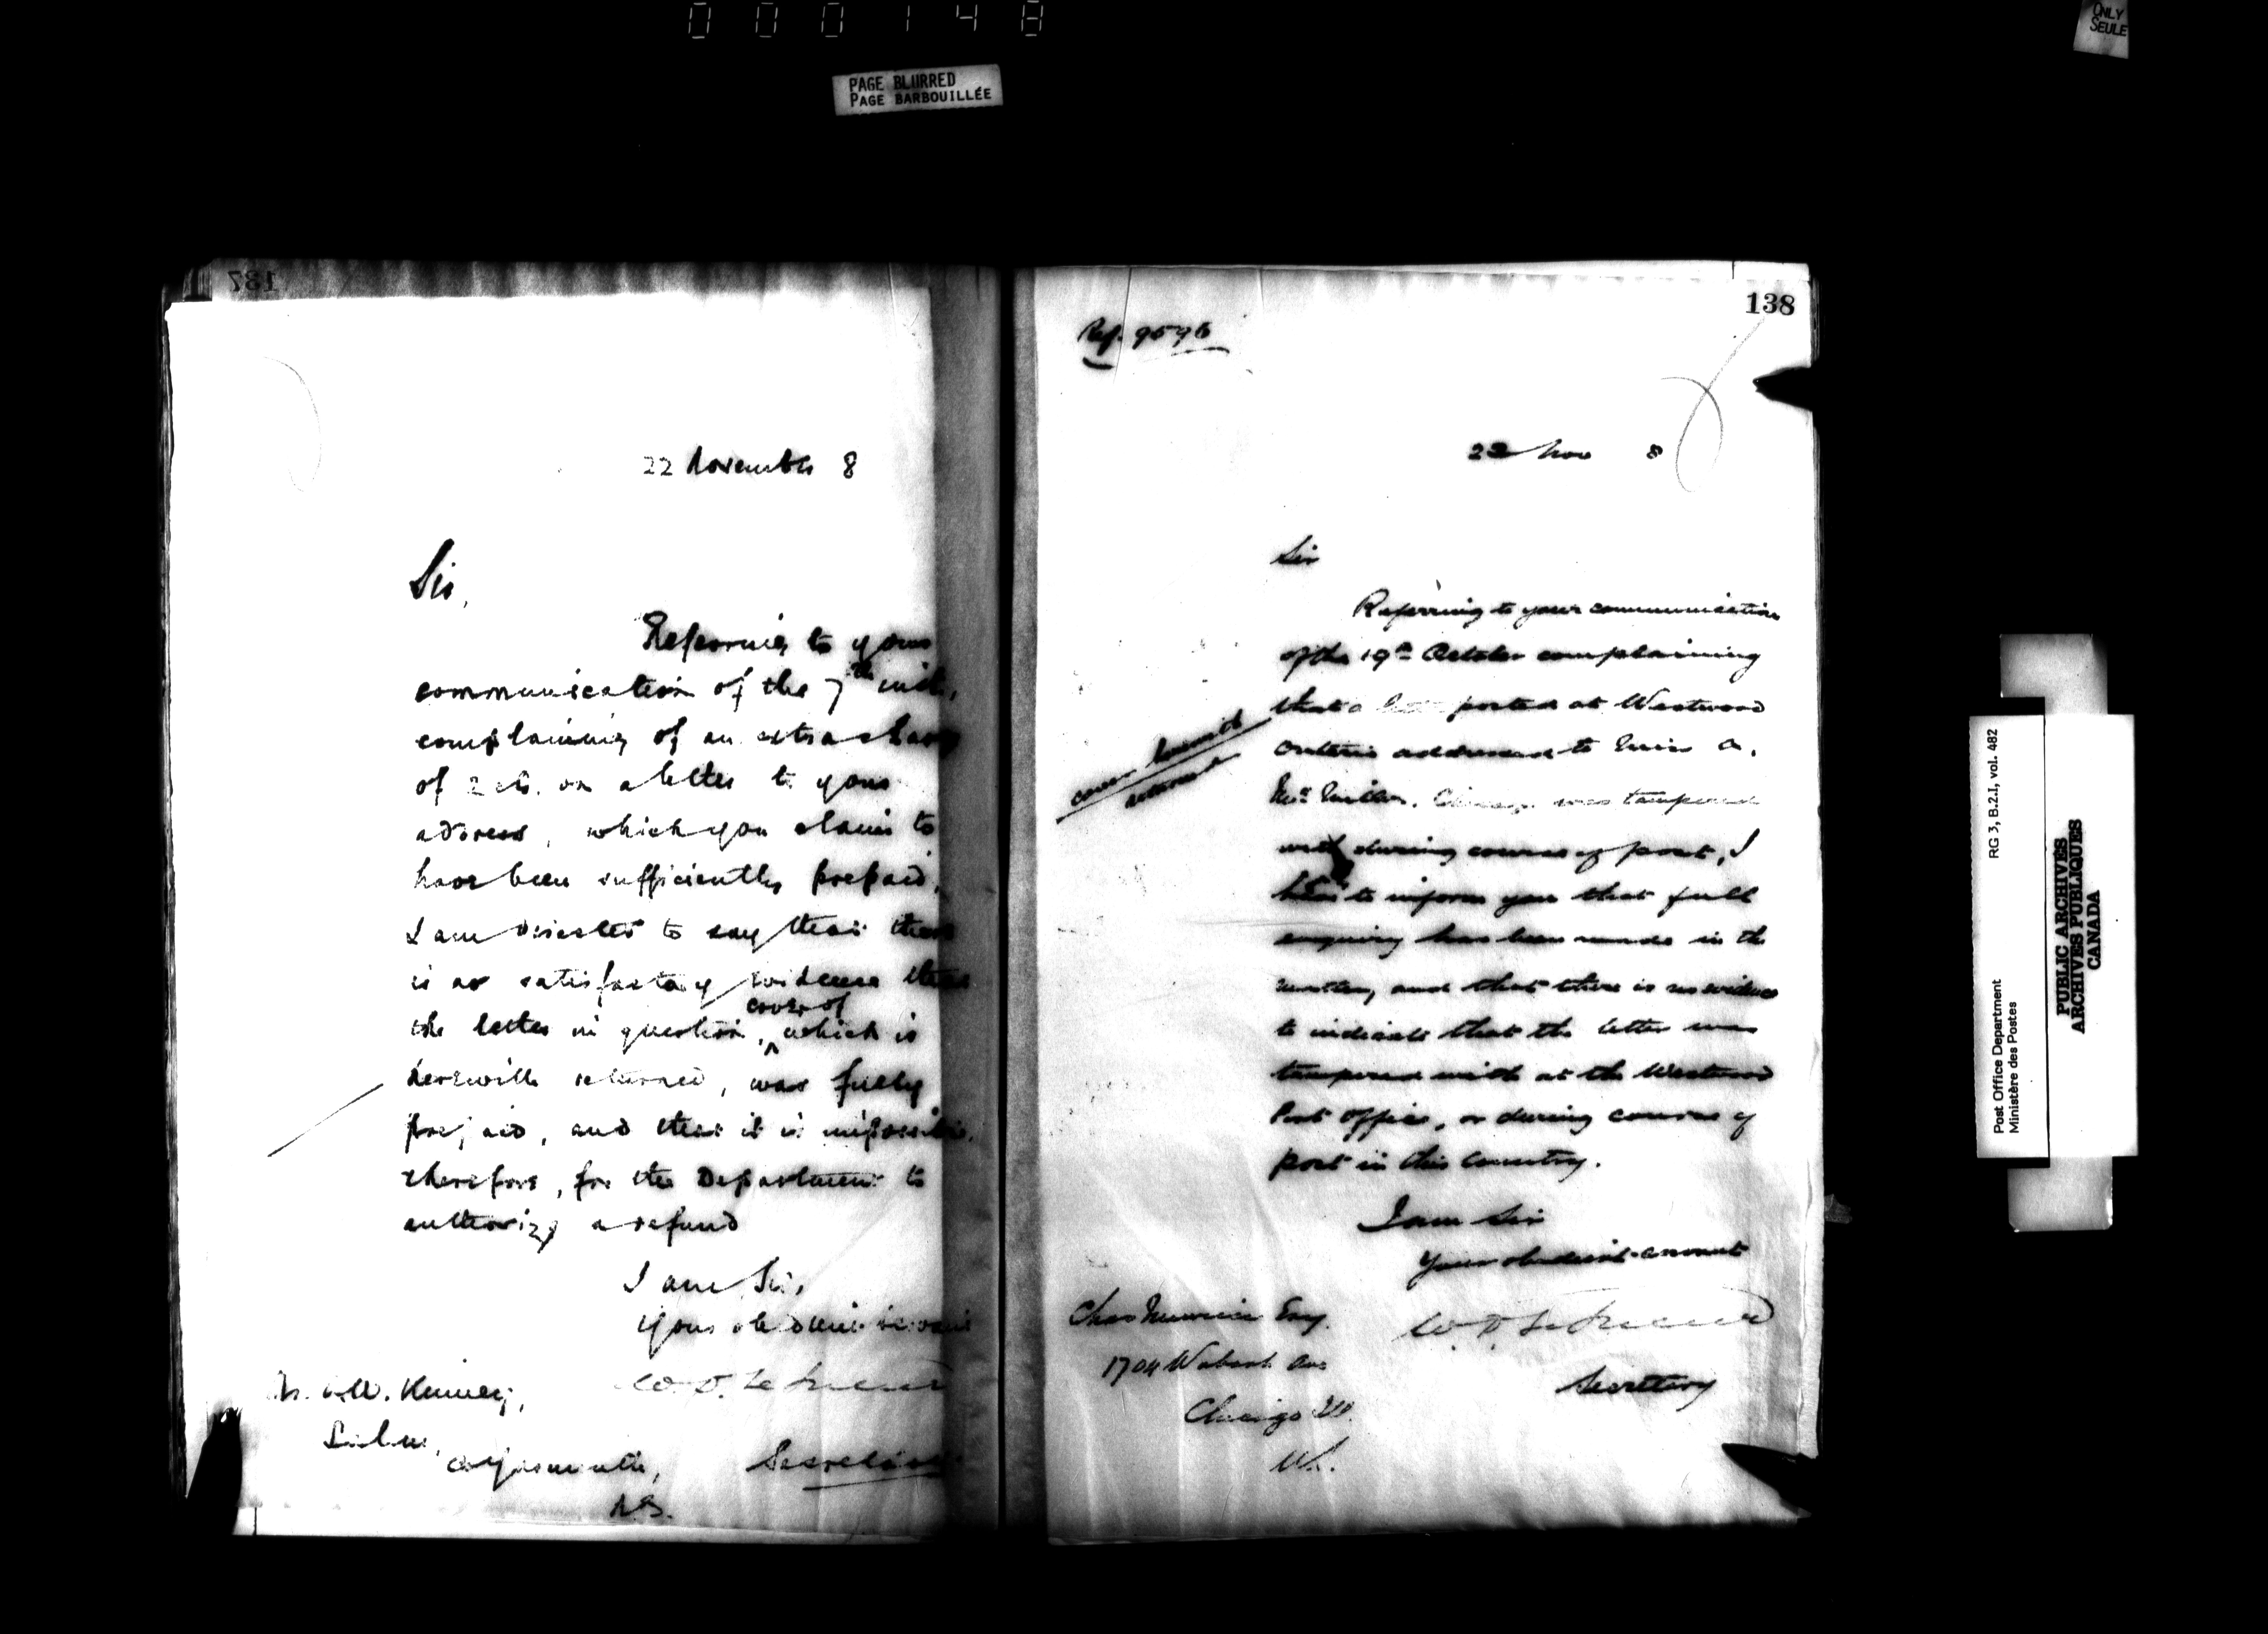 000148
PAGE BLURRED
PAGE BARBOUILLÉE
ONLY
SEULE
137
22 November 8
Sir,
Referring to your
communication of the 7th inst.,
complaining of an extra charge
of 2 cts. on a letter to your
address, which you claim to
have been sufficiently prepaid,
I am directed to say that there
is no satisfactory evidence that
cover of
the letter in question, which is
herewith returned, was fully
prepaid, and that it is impossible,
therefore, for the Department to
authorize a refund
I am, Sir,
Your obedient servant
W. D. LeSueur
Secretary
W. Kinney,
Yarmouth,
N.S.
138
Ref. 9596
22 Nov 8
Sir
Referring to your communication
of the 19th October complaining
that a letter posted at Westwood
Ontario addressed to Miss A.
Chicago was tampered
with during course of post, I
have to inform you that full
enquiry has been made in the
matter, and that there is no evidence
to indicate that the letter was
tampered with at the Westwood
Post Office, or during course of
post in this Country.
cover herewith
returned
I am Sir
Your obedient servant
W D LeSueur
Secretary
Chas Esq.
1704 Wabash Ave
Chicago Ill.
W.
Post Office Department
Ministère des Postes
RG 3, B.2.I, vol. 482
PUBLIC ARCHIVES
ARCHIVES PUBLIQUES
CANADA